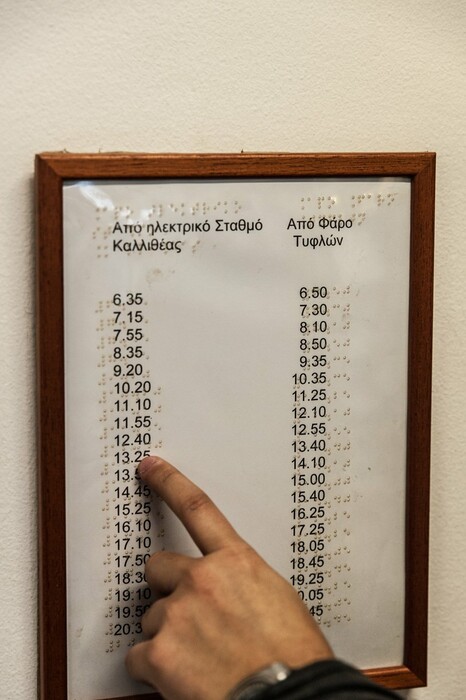 Από ηλεκτρικό Σταθμό
Καλλιθέας
6.35
7.15
7.55
8.35
9.20
10.20
11.10
11.55
12.40
13.25
14.45
15.25
16.10
17.10
17.50
18.30
19.10
19.50
Από Φάρο
Τυφλών
6.50
7.30
8.10
8.50
9.35
10.35
11.25
12.10
12.55
13.40
14.10
15.00
15.40
16.25
17.25
18.05
18.45
19.25